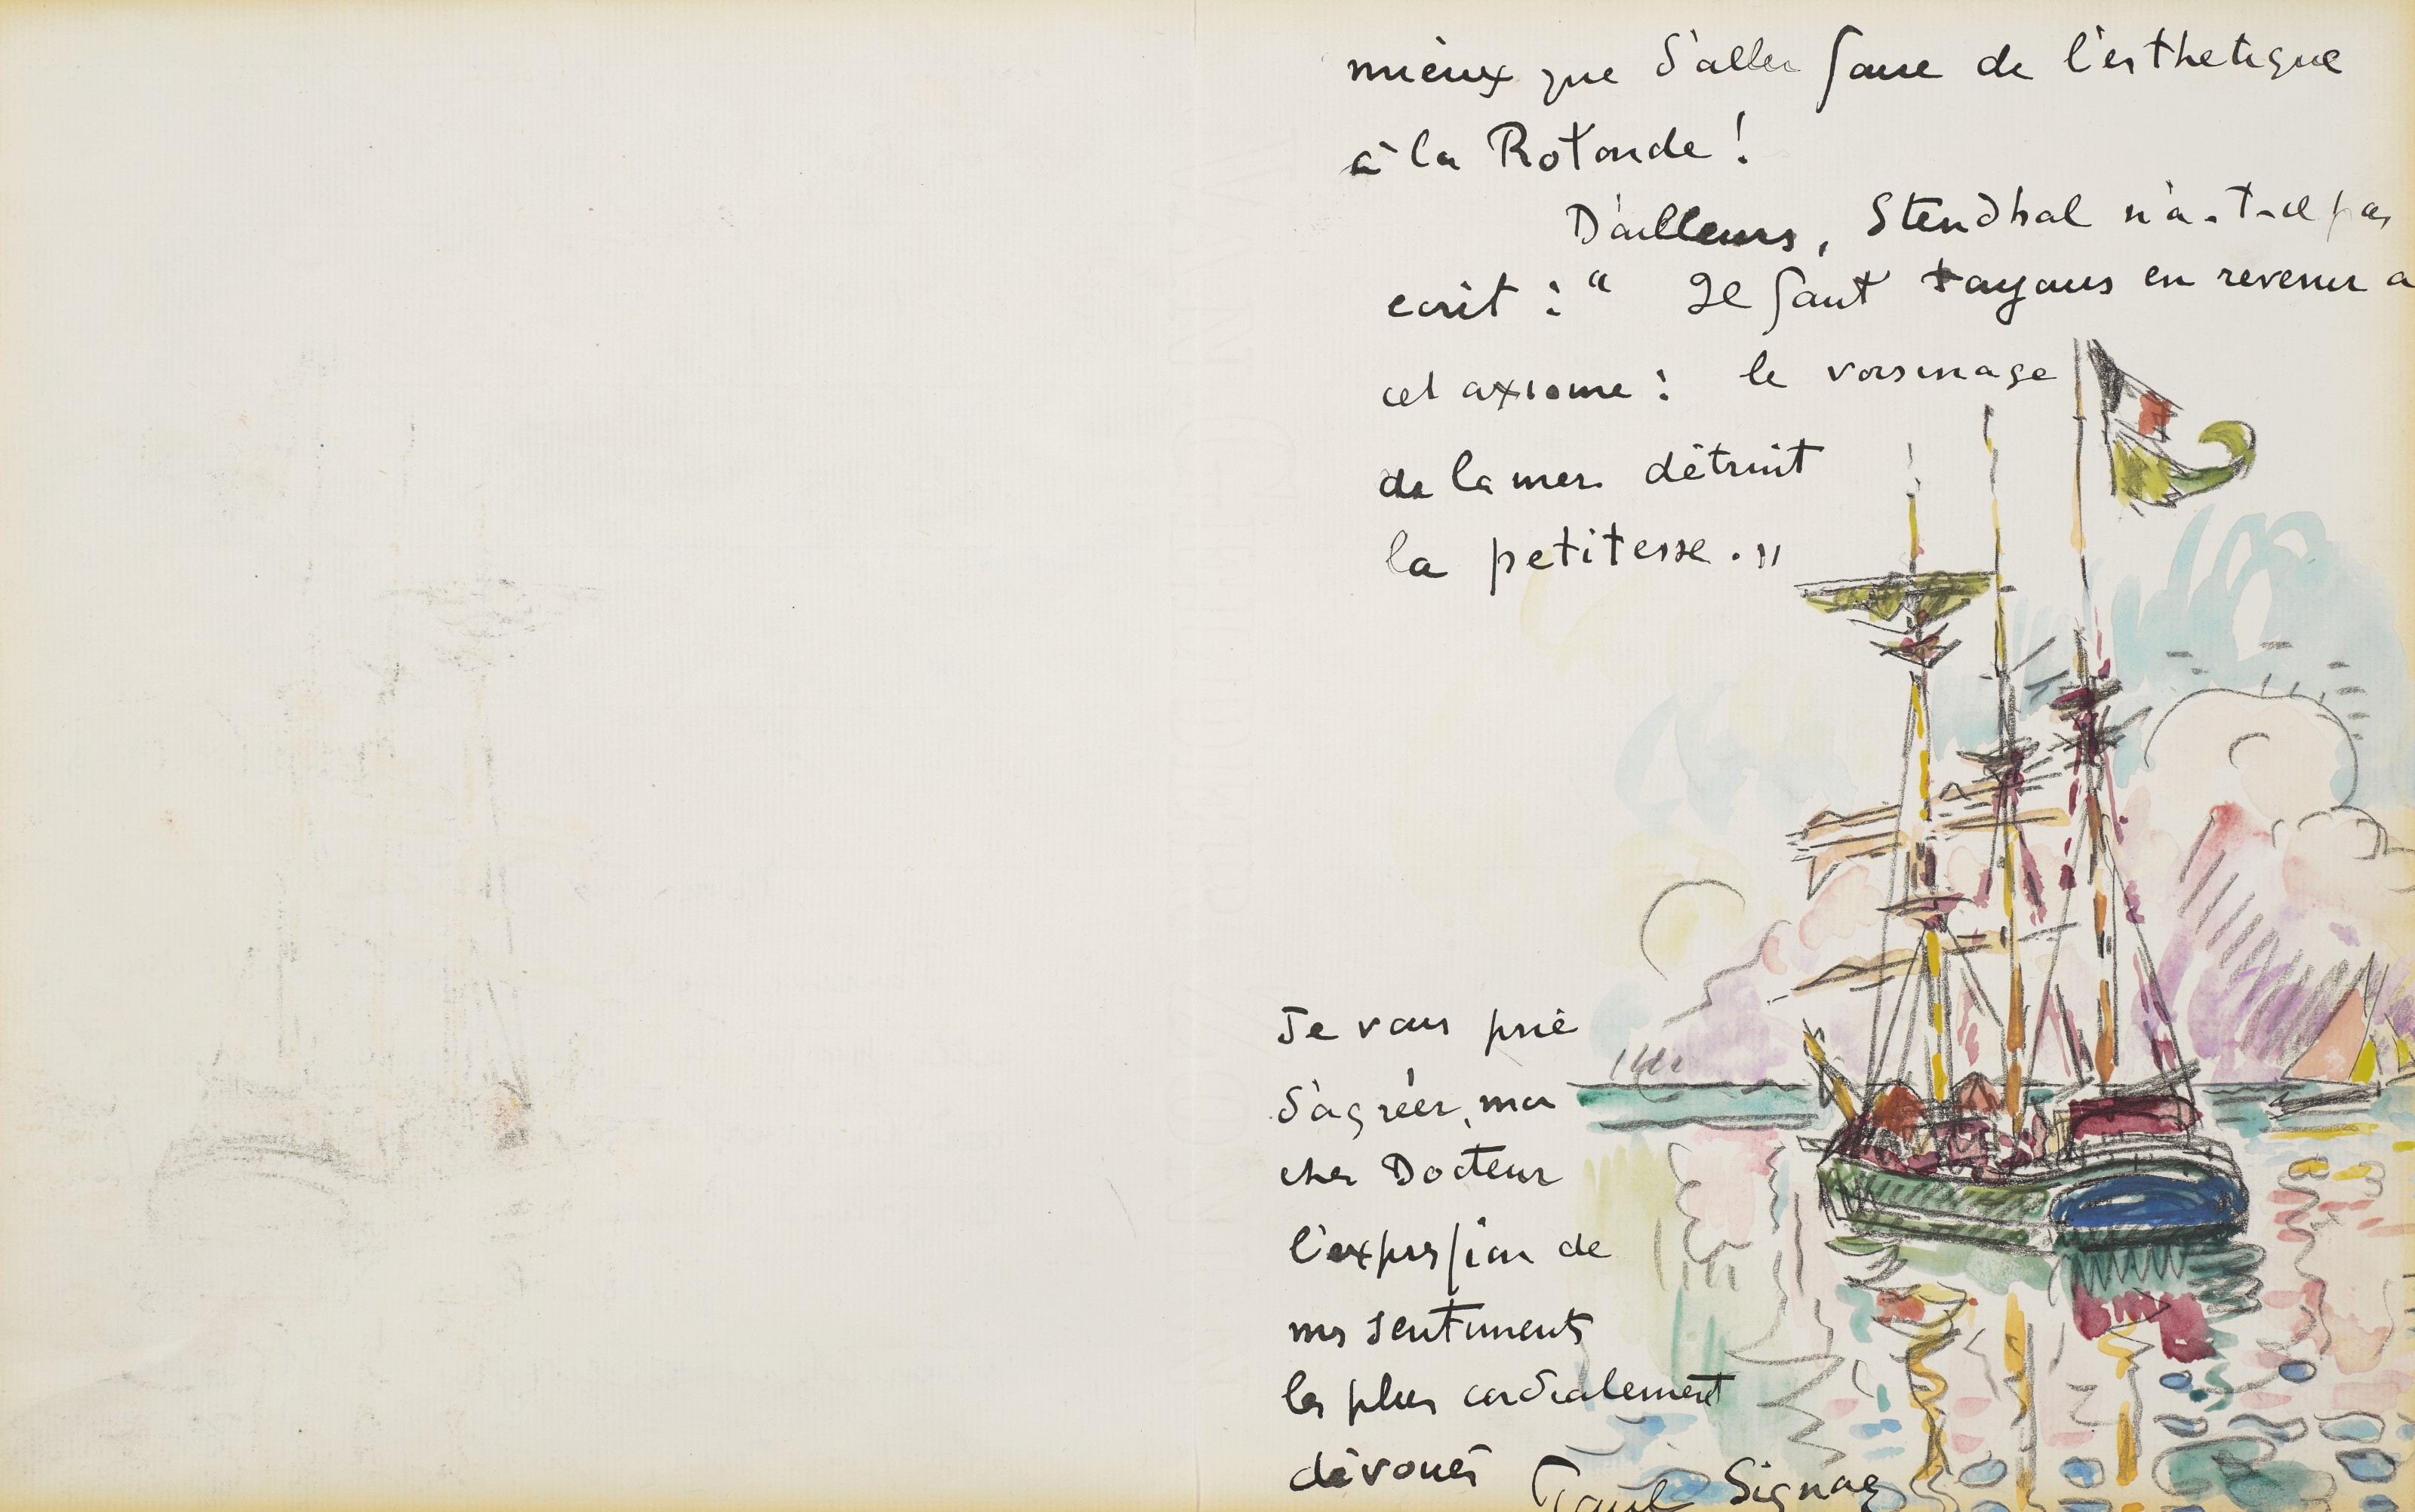 mieux que d'aller faire de l'esthetique
à la Rotonde !
D'ailleurs, Stendhal n'a-t-il pas
ecrit : " Il faut toujours en revenir a
cet axiome : le voisinage
de la mer détruit
la petitesse . "
Je vous prie
d'agréer, mon
cher Docteur
l'expression de
mes sentiments
les plus cordialement
dévoués
Paul Signac